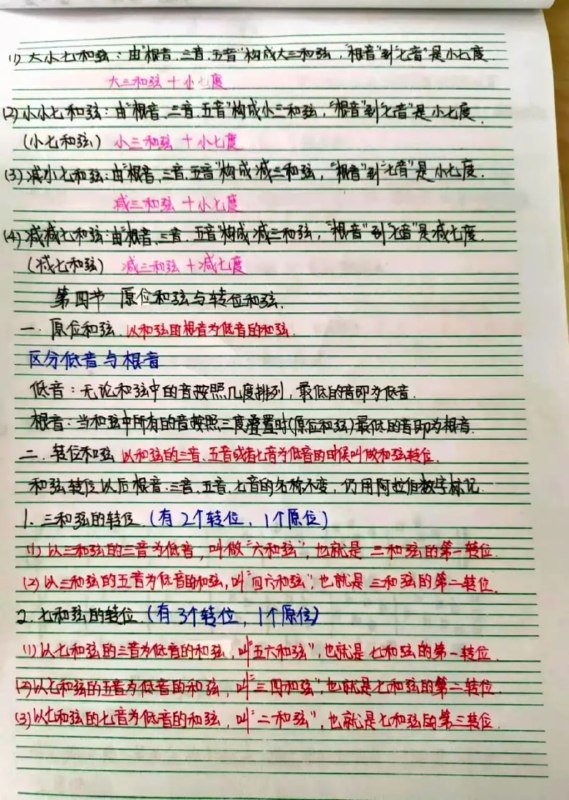 (1) 大小七和弦：由"根音、三音、五音"构成大三和弦，"根音"到"七音"是小七度.
大三和弦 + 小七度
(2) 小小七和弦：由"根音、三音、五音"构成小三和弦，"根音"到"七音"是小七度.
(小七和弦) 小三和弦 + 小七度
(3) 减小七和弦：由"根音、三音、五音"构成减三和弦，"根音"到"七音"是小七度.
减三和弦 + 小七度
(4) 减减七和弦：由"根音、三音、五音"构成减三和弦，"根音"到"七音"是减七度.
(减七和弦) 减三和弦 + 减七度
第四节 原位和弦与转位和弦.
一. 原位和弦 以和弦的根音为低音的和弦.
区分低音与根音
低音：无论和弦中的音按照几度排列，最低的音即为低音.
根音：当和弦中所有的音按照三度叠置时(原位和弦)最低的音即为根音.
二. 转位和弦 以和弦的三音、五音或者七音为低音的时候叫做和弦转位.
和弦转位以后根音、三音、五音、七音的名称不变，仍用阿拉伯数字标记.
1. 三和弦的转位 (有2个转位，1个原位)
(1) 以三和弦的三音为低音，叫做"六和弦"，也就是 三和弦的第一转位.
(2) 以三和弦的五音为低音的和弦，叫"四六和弦"，也就是 三和弦的第二转位.
2. 七和弦的转位 (有3个转位，1个原位)
(1) 以七和弦的三音为低音的和弦，叫"五六和弦"，也就是 七和弦的第一转位.
(2) 以七和弦的五音为低音的和弦，叫"三四和弦"，也就是七和弦的第二转位.
(3) 以七和弦的七音为低音的和弦，叫"二和弦"，也就是七和弦的第三转位.